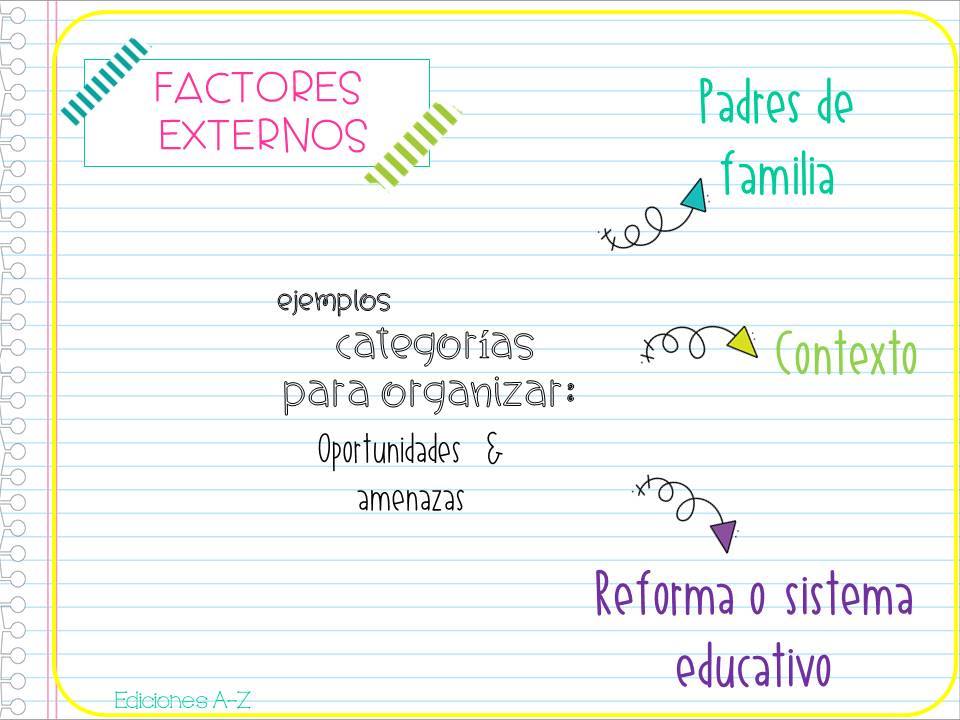 FACTORES
EXTERNOS
Padres de
familia
ejemplos
categorías
para organizar:
Oportunidades &
amenazas
Contexto
Reforma o sistema
educativo
Ediciones A-Z